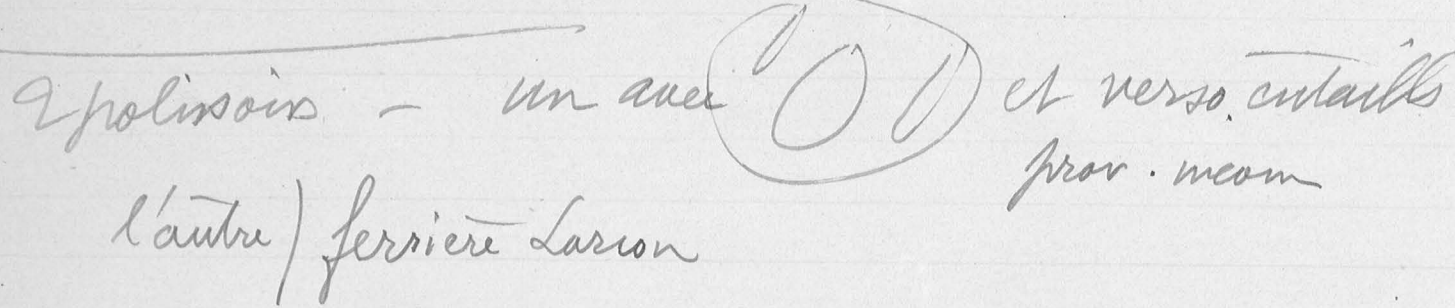 2 polissoirs - un avec et verso. entailles
prov. inconn
l'autre) ferrière Larcon